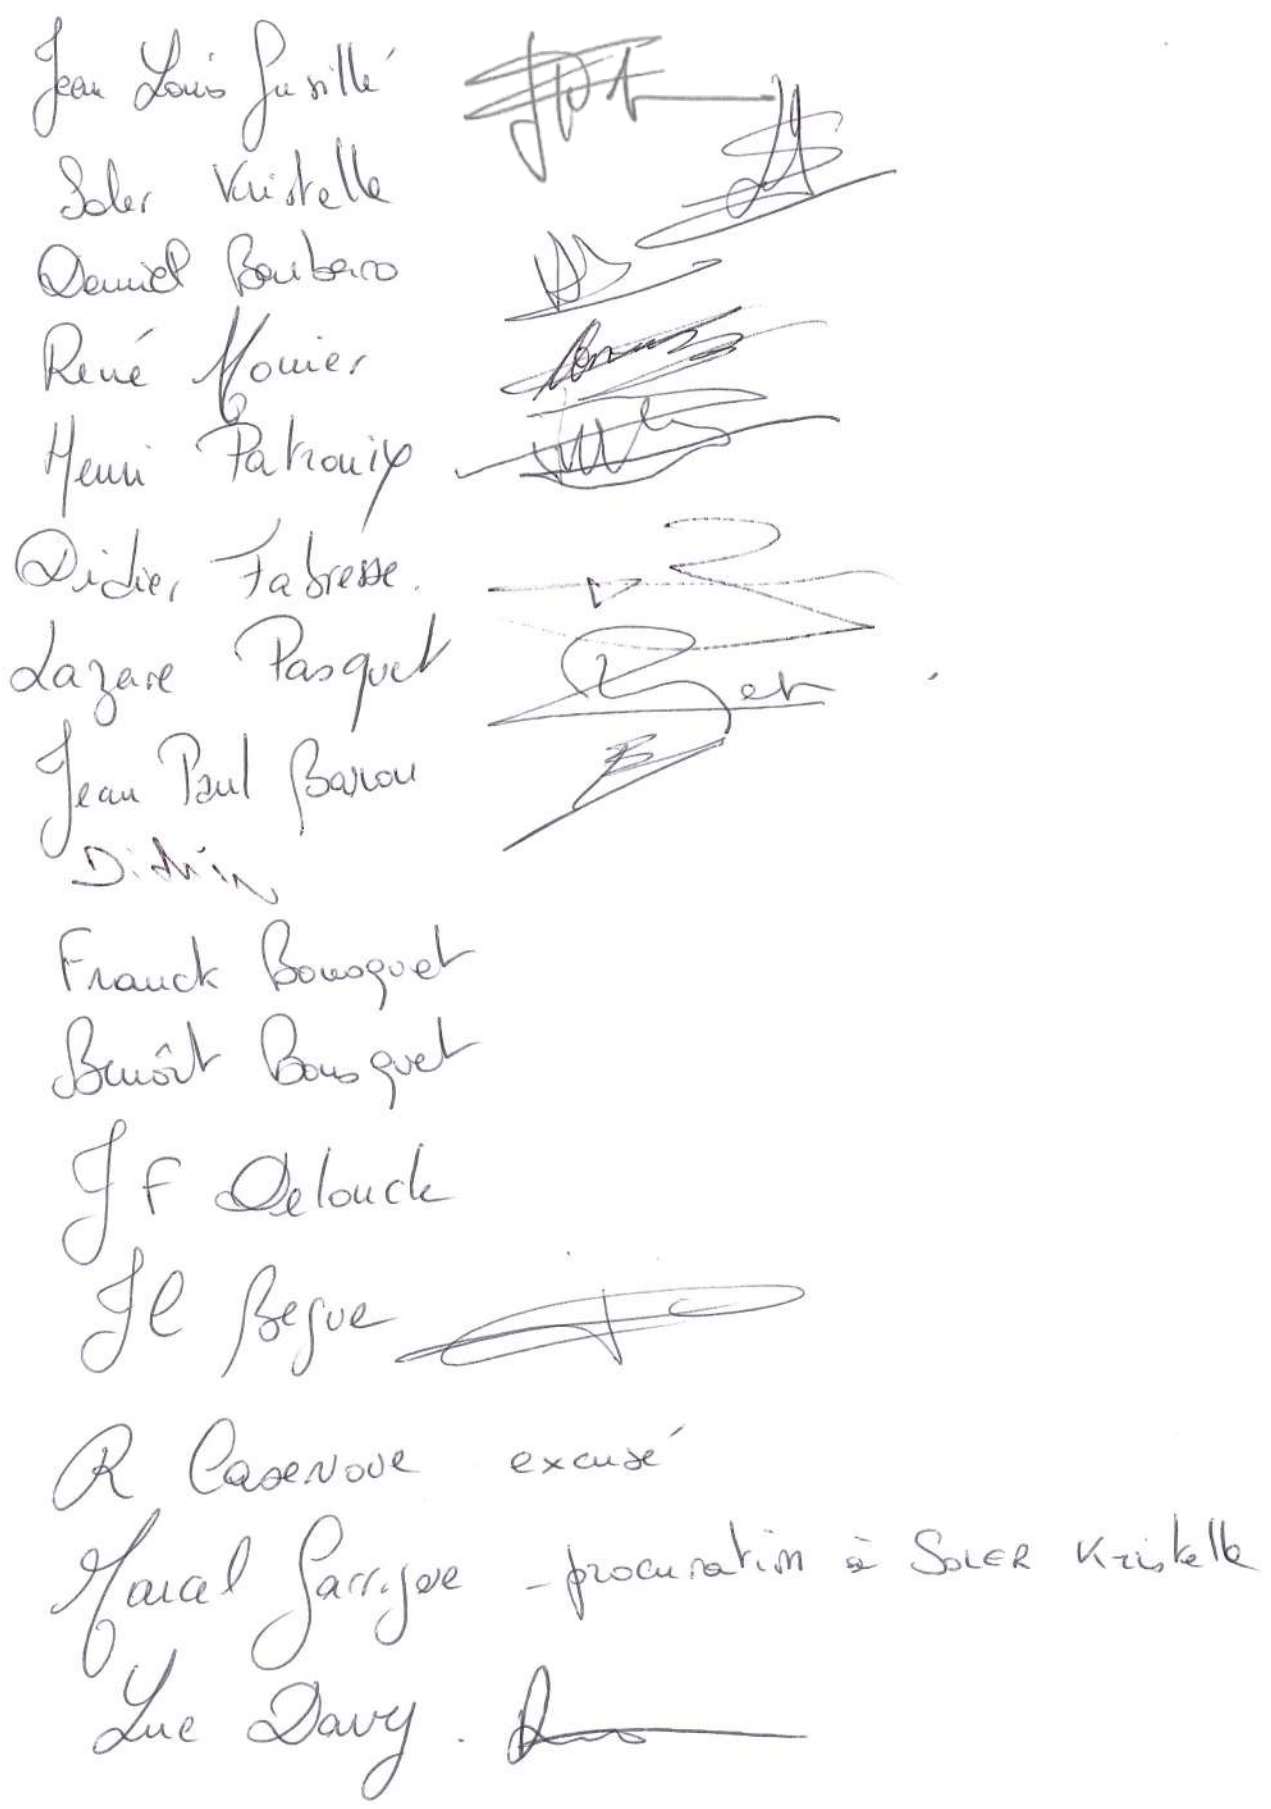 Jean Louis
Soler Kristelle
Daniel Barbaro
René Monier
Henri Patrouix
Didier Fabresse.
Lazare Pasquet
Jean Paul Barou
Franck Bousquet
Benoît Bousquet
J F Delouck
J C Begue
R Casenove excusé
Marcel Garrigue - procuration à SOLER Kristelle
Luc Davy.